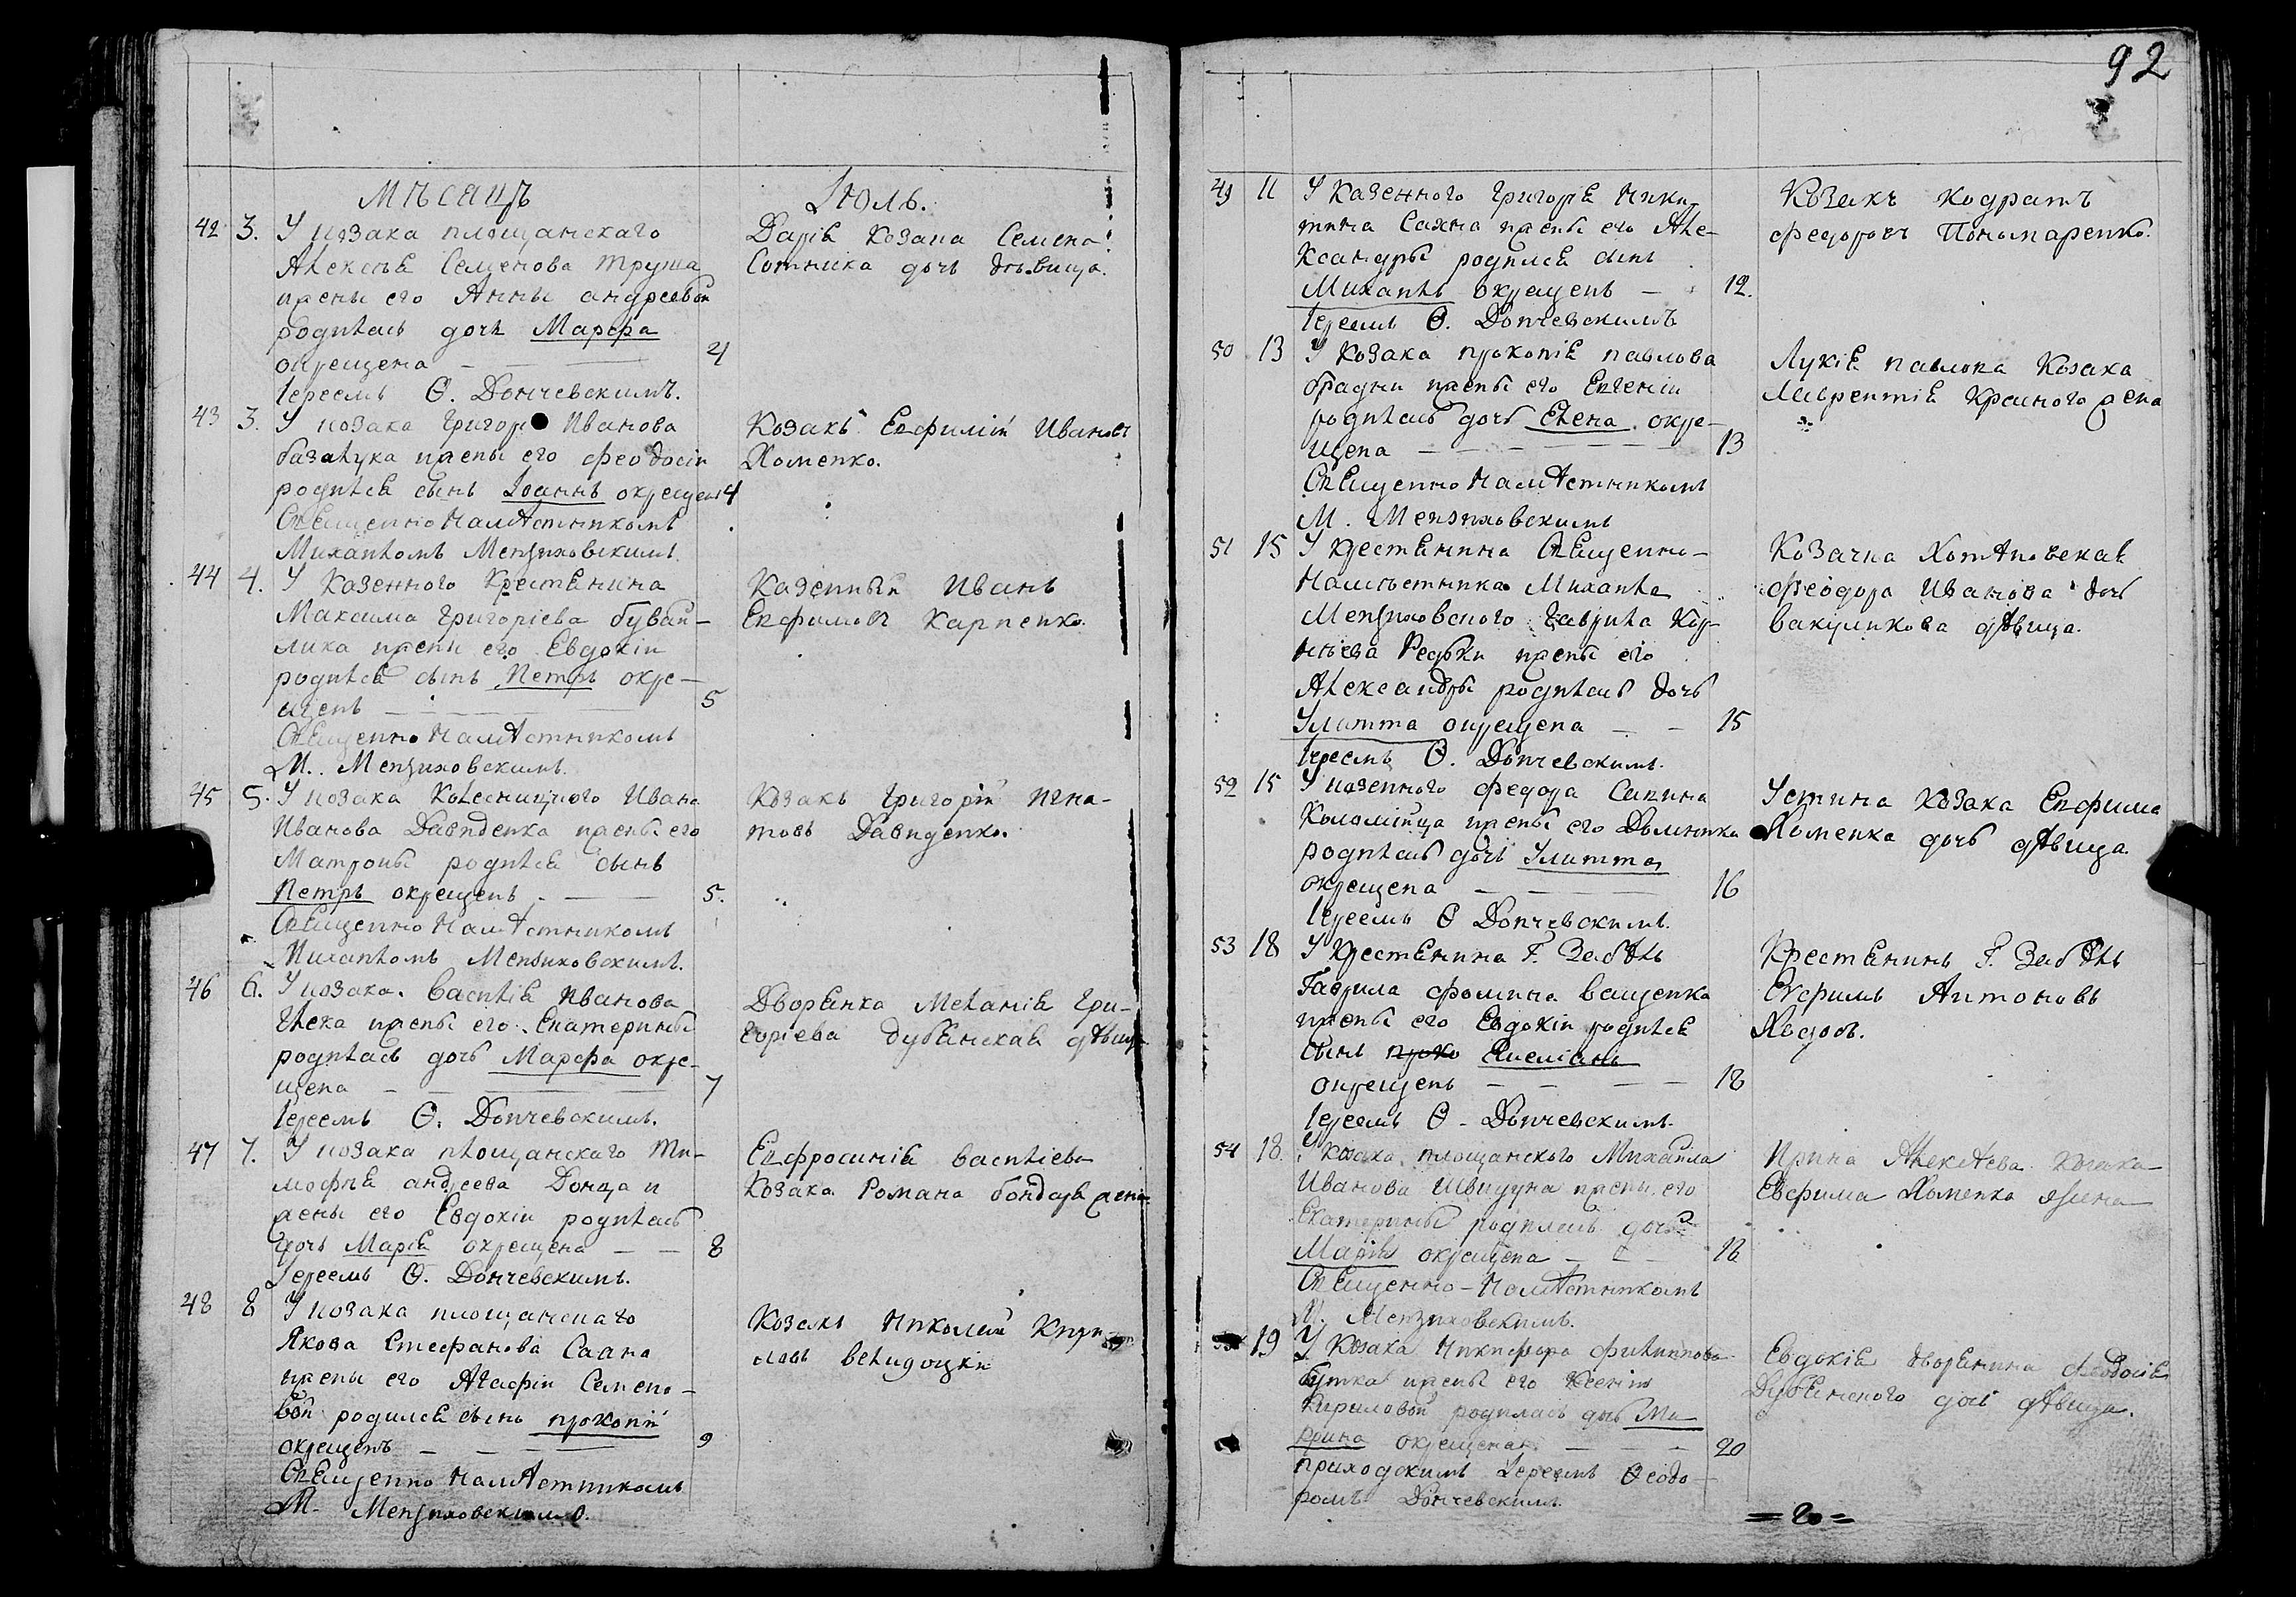 92
Мѣсяцъ Іюль.
42 3. У козака площанскаго
Алексѣя Семенова Труша
жены его Анны андреевой
родилась дочь Марѳа
окрещена — 4
Іереемъ Ѳ. Дончевскимъ.
Дарія козака Семена
Сотника дочь дѣвица.
43 3. У козака Григор Иванова
базалука жены его феодосіи
родился сынъ Іоаннъ окрещенъ 4
Священно Намѣстникомъ
Михаиломъ Мензиховскимъ.
Козакъ Евфимій Ивановъ
Хоменко.
44 4. У Казенного Крестянина
Максима Григоріева бувай-
лика жены его Евдокіи
родился сынъ Петръ окре-
щенъ — 5
Священно Намѣстникомъ
М. Мензиховскимъ.
Казенный Иванъ
Евфимовъ Карпенко.
45 5. У козака Колесницкого Ивана
Иванова Давиденка жены его
Матроны родился сынъ
Петръ окрещенъ. — 5.
Священно Намѣстникомъ
Михаиломъ Мензиховскимъ.
Козакъ Григорій Игна-
товъ Давиденко.
46 6. У козака. василія Иванова
жены его Екатерины
родилась дочь Марѳа окре-
щена — 7
Іереемъ Ѳ. Дончевскимъ.
Дворянка Меланія Гри-
горіева дубянская дѣвица
47 7. У козака площанскаго Ти-
мофѣя андреева Донца и
жены его Евдокіи родилась
дочь Марія окрещена — — 8
Іереемъ Ѳ. Дончевскимъ.
Евфросинія василіева
Козака Романа бондаря жена
48 8 У козака площанскаго
Якова Стефанова Саана
жены его Агафіи Семено-
вой родился сынъ прокопій
окрещенъ — — 9
Священно Намѣстникомъ
М. Мензиховскимъ.
Козакъ Николай Кири-
ловъ
49 11 У Казенного Григорія Ники-
тина Сахна жены его Але-
ксандры родился сынъ
Михаилъ окрещенъ — 12.
Іереемъ Ѳ. Дончевскимъ
Козакъ Кодратъ
федоровъ Пономаренко.
50 13 У козака прокопія павлова
брадни жены его Евгеніи
родилась дочь Елена. окре-
щена — 13
Священно Намѣстникомъ
М. Мензиховскимъ
Лукія павлова Козака
Лаврентія Красного жена
51 15 У крестянина Священно-
Намѣстника Михаила
Мензиховского Гаврила Кор-
нѣева Редьки жены его
Александры родилась дочь
Улитта окрещена — — 15
Іереемъ Ѳ. Дончевскимъ.
Козачка
феодора Иванова дочь
вакуликова дѣвица.
52 15 У казенного федора Савина
Коломійца жены его Домники
родилась дочь Улитта
окрещена — 16
Іереемъ Ѳ Дончевскимъ.
Устина козака Евфима
Хоменка дочь дѣвица
53 18 У Крестянина Г. Забѣлы
Гаврила фомина ващенка
жены его Евдокіи родился
сынъ проко Емеліанъ
окрещенъ — — 18
Іереемъ Ѳ. Дончевскимъ.
Крестянинъ Г. Забѣлы
Евфимъ Антоновъ
54 18. У козака площанского Михаила
Иванова Швидуна жены его
Екатерины родилась дочь
Марія окрещена — — 18
Священно-Намѣстникомъ
М. Мензиховскимъ.
Ирина Алексѣева козака
Евфима Хоменка жена
19 У Козака Никифора филиппова
жены его Ксеніи
Кириловой родилась дочь Ма
крина окрещена. — — 20
приходскимъ Іереемъ Ѳеодо-
ромъ Дончевскимъ.
Евдокія дворянина Ѳеодосія
Дубянского дочь дѣвица.